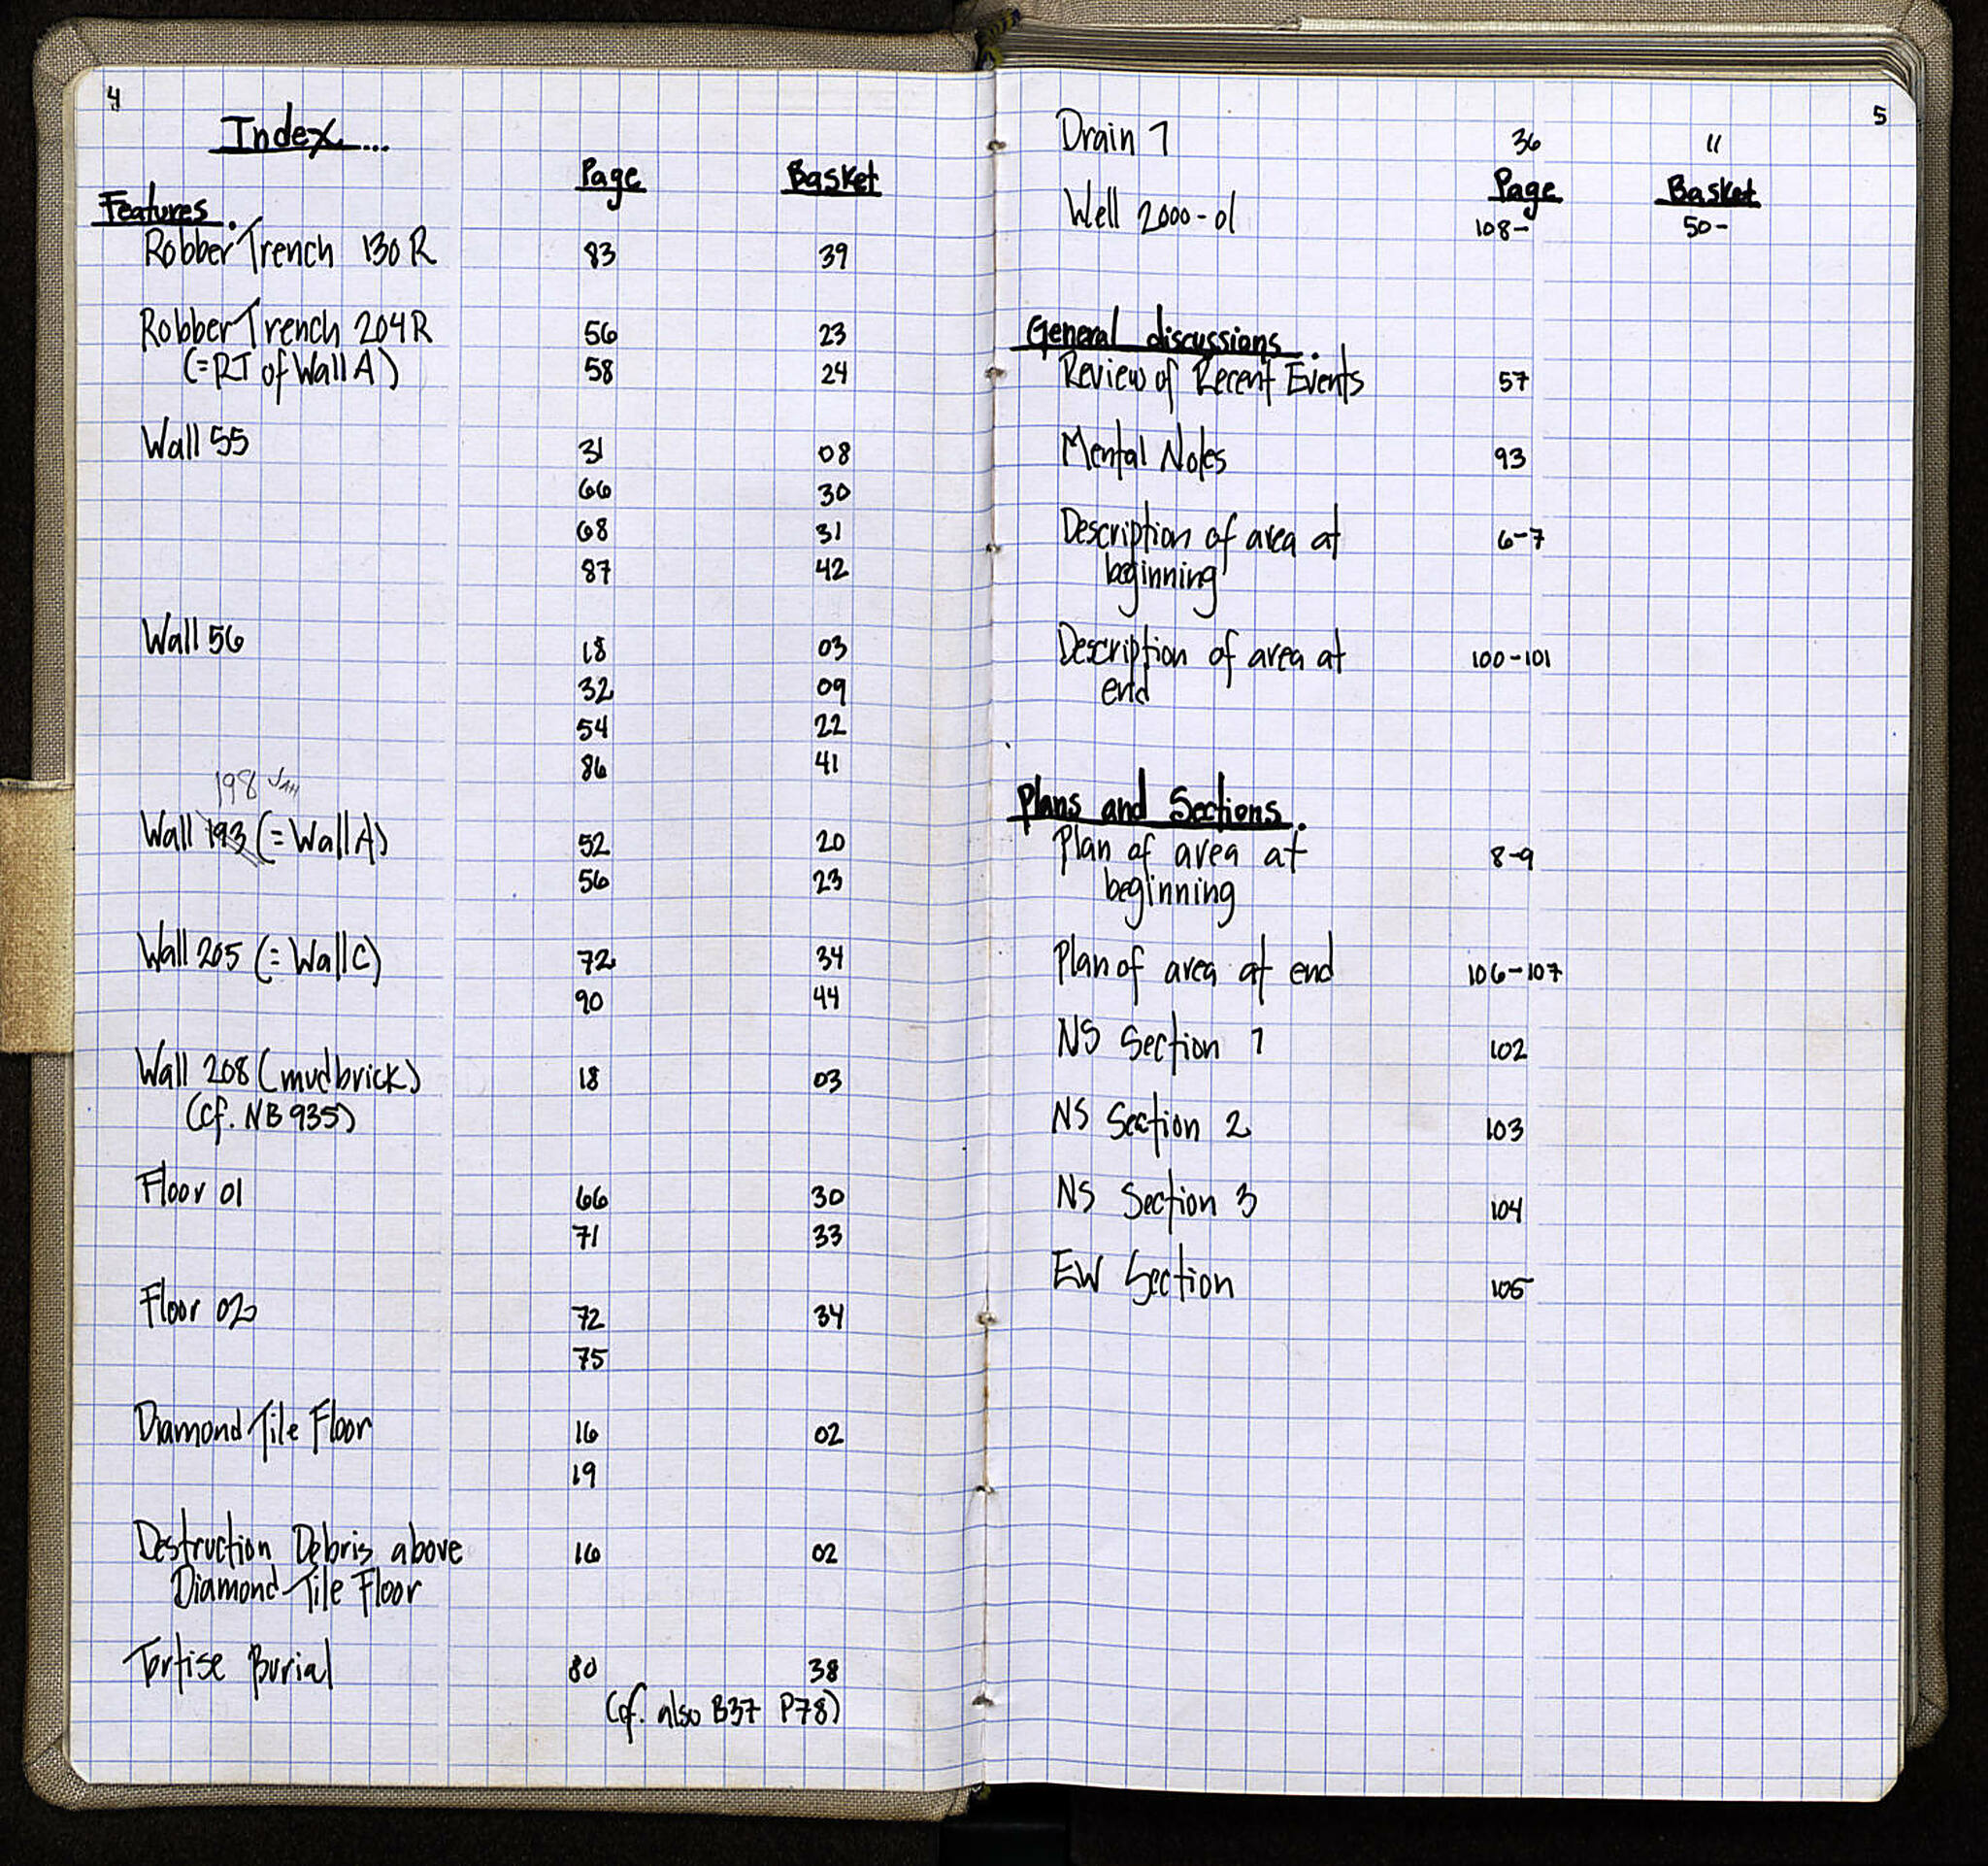 4
Index...
Page Basket
Features.
Robber Trench 130 R 83 39
Robber Trench 204 R 56 23
(=RT of Wall A) 58 24
Wall 55 31 08
66 30
68 31
87 42
Wall 56 18 03
32 09
54 22
86 41
198 JAH
Wall 193 (= Wall A) 52 20
56 23
Wall 205 (= Wall C) 72 34
90 44
Wall 208 (mudbrick) 18 03
(cf. NB 935)
Floor 01 66 30
71 33
Floor 02 72 34
75
Diamond Tile Floor 16 02
19
Destruction Debris above 16 02
Diamond Tile Floor
Tortise Burial 80 38
(cf. also B37 P78)
5
Drain 1 36 11
Page Basket
Well 2000-01 108- 50-
General discussions.
Review of Recent Events 57
Mental Notes 93
Description of area at 6-7
beginning
Description of area at 100-101
end
Plans and Sections.
Plan of area at 8-9
beginning
Plan of area at end 106-107
NS Section 1 102
NS Section 2 103
NS Section 3 104
EW Section 105